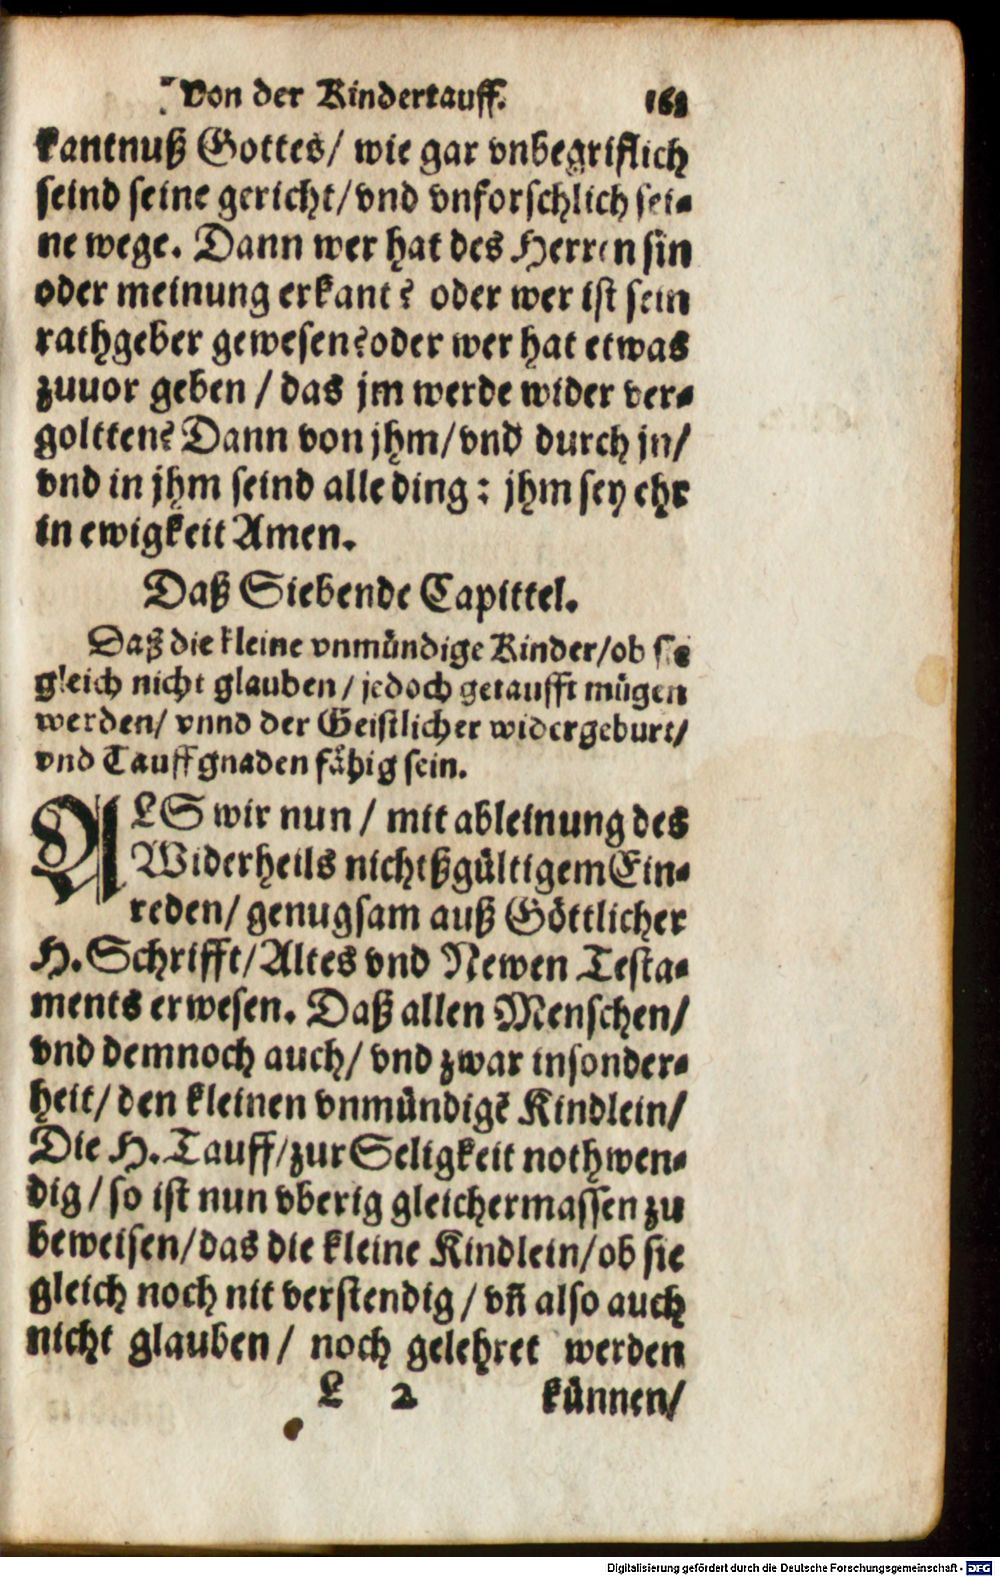 Von der Kindertauff. 163
kantnuß Gottes/ wie gar vnbegriflich
seind seine gericht/vnd vnforschlich sei-
ne wege. Dann wer hat des Herren sin
oder meinung erkant? oder wer ist sein
rathgeber gewesen?oder wer hat etwas
zuuor geben / das jm werde wider ver-
goltten? Dann von jhm/vnd durch jn/
vnd in jhm seind alle ding: jhm sey ehr
in ewigkeit Amen.
Daß Siebende Capittel.
Daß die kleine vnmündige Kinder/ob sie
gleich nicht glauben / jedoch getaufft mügen
werden/ vnnd der Geistlicher widergeburt/
vnd Tauffgnaden fähig sein.
ALS wir nun / mit ableinung des
Widerheils nichtßgültigem Ein-
reden/ genugsam auß Göttlicher
H. Schrifft/Altes vnd Newen Testa-
ments erwesen. Daß allen Menschen/
vnd demnoch auch/ vnd zwar insonder-
heit/ den kleinen vnmündigẽ Kindlein/
Die H. Tauff/zur Seligkeit nothwen-
dig / so ist nun vberig gleichermassen zu
beweisen/das die kleine Kindlein/ob sie
gleich noch nit verstendig / vñ also auch
nicht glauben/ noch gelehret werden
L 2 künnen/
Digitalisierung gefördert durch die Deutsche Forschungsgemeinschaft - DFG